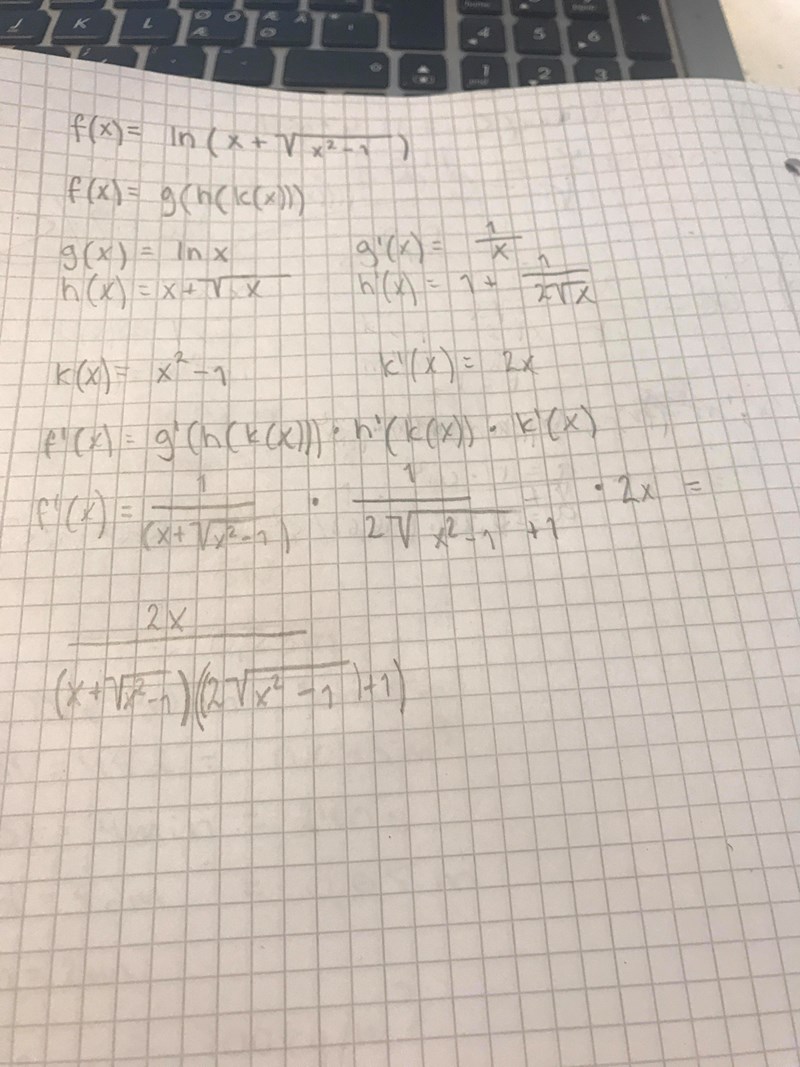 J K L Ø Ö Æ Æ Ä
Æ Ø
4 5 6 +
1 2 3
f(x) = ln(x + √(x² - 1))
f(x) = g(h(k(x)))
g(x) = ln x g'(x) = 1/x
h(x) = x + √x h'(x) = 1 + 1/(2√x)
k(x) = x² - 1 k'(x) = 2x
f'(x) = g'(h(k(x))) · h'(k(x)) · k'(x)
f'(x) = 1/(x + √(x² - 1)) · 1/(2√(x² - 1) + 1) · 2x =
2x/((x + √(x² - 1))((2√(x² - 1)) + 1))